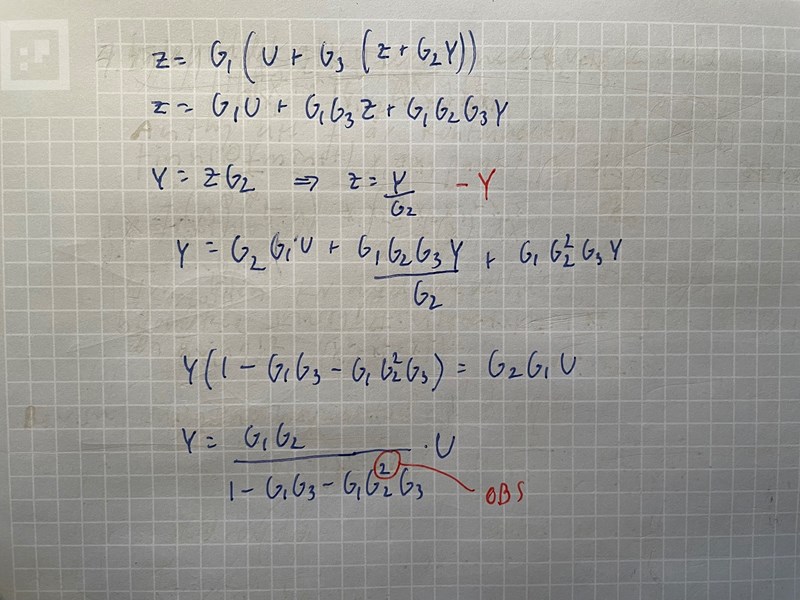 z = G₁(U + G₃(z + G₂Y))
z = G₁U + G₁G₃z + G₁G₂G₃Y
Y = zG₂ ⇒ z = Y/G₂ - Y
Y = G₂G₁·U + G₁G₂G₃Y/G₂ + G₁G₂²G₃Y
Y(1 - G₁G₃ - G₁G₂²G₃) = G₂G₁U
Y = G₁G₂/(1 - G₁G₃ - G₁G₂²G₃) · U
OBS